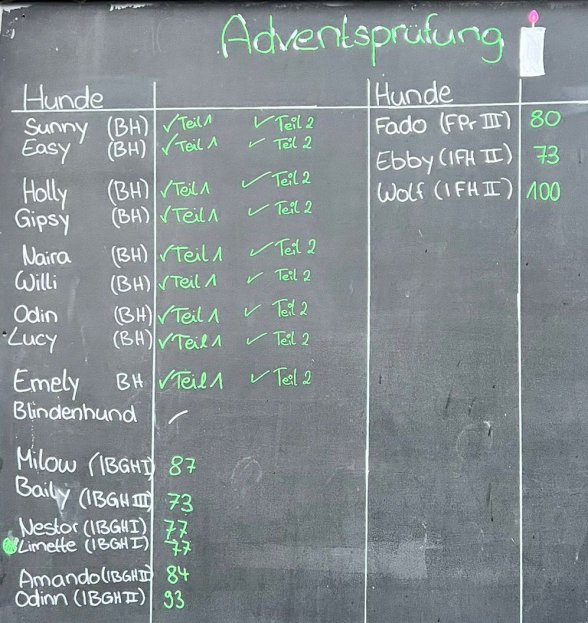 Adventsprüfung
Hunde
Sunny (BH) ✓Teil 1 ✓Teil 2
Easy (BH) ✓Teil 1 ✓Teil 2
Holly (BH) ✓Teil 1 ✓Teil 2
Gipsy (BH) ✓Teil 1 ✓Teil 2
Naira (BH) ✓Teil 1 ✓Teil 2
Willi (BH) ✓Teil 1 ✓Teil 2
Odin (BH) ✓Teil 1 ✓Teil 2
Lucy (BH) ✓Teil 1 ✓Teil 2
Emely BH ✓Teil 1 ✓Teil 2
Blindenhund
Milow (IBGH I) 87
Baily (IBGH III) 73
Nestor (IBGH I) 77
Limette (IBGH I) 77
Amando (IBGH II) 84
Odinn (IBGH II) 93
Hunde
Fado (FPr III) 80
Ebby (IFH II) 73
Wolf (IFH II) 100